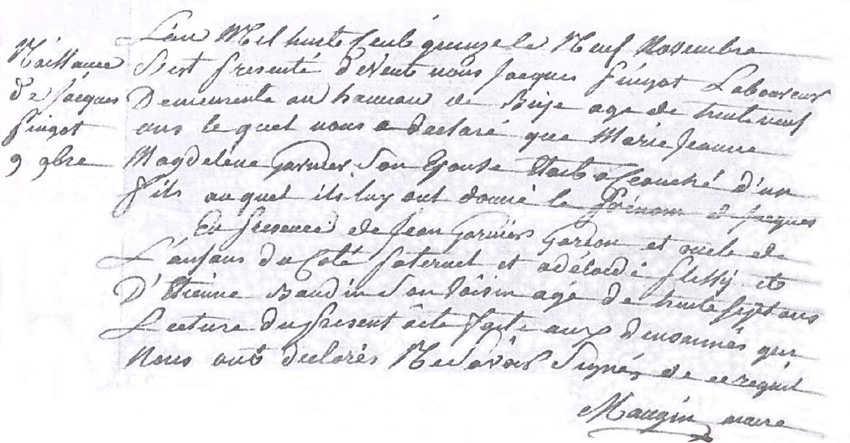 Naissance
de Jacques
pingot
9 9bre
L'an Mil huit Cent quinze le Neuf Novembre
S'est presenté devent nous Jacques pingot Laboureur
Demeurente au hameau de age de trente neuf
ans le quel nous a declaré que Marie Jeanne
Magdelene Garnier Son Epouse Etait acouché d'un
fils auquel ils luy ont donné le prénom de Jacques
En presence de Jean Garnier Garçon et oncle de
L'anfans du Coté paternel et adélaide
D'Etienne Baudin Son Voisin agé de trente Sept ans
Lecture du present acte faite aux denommés qui
Nous ont declarés Ne Savoir Signér de ce requit
Maugin maire